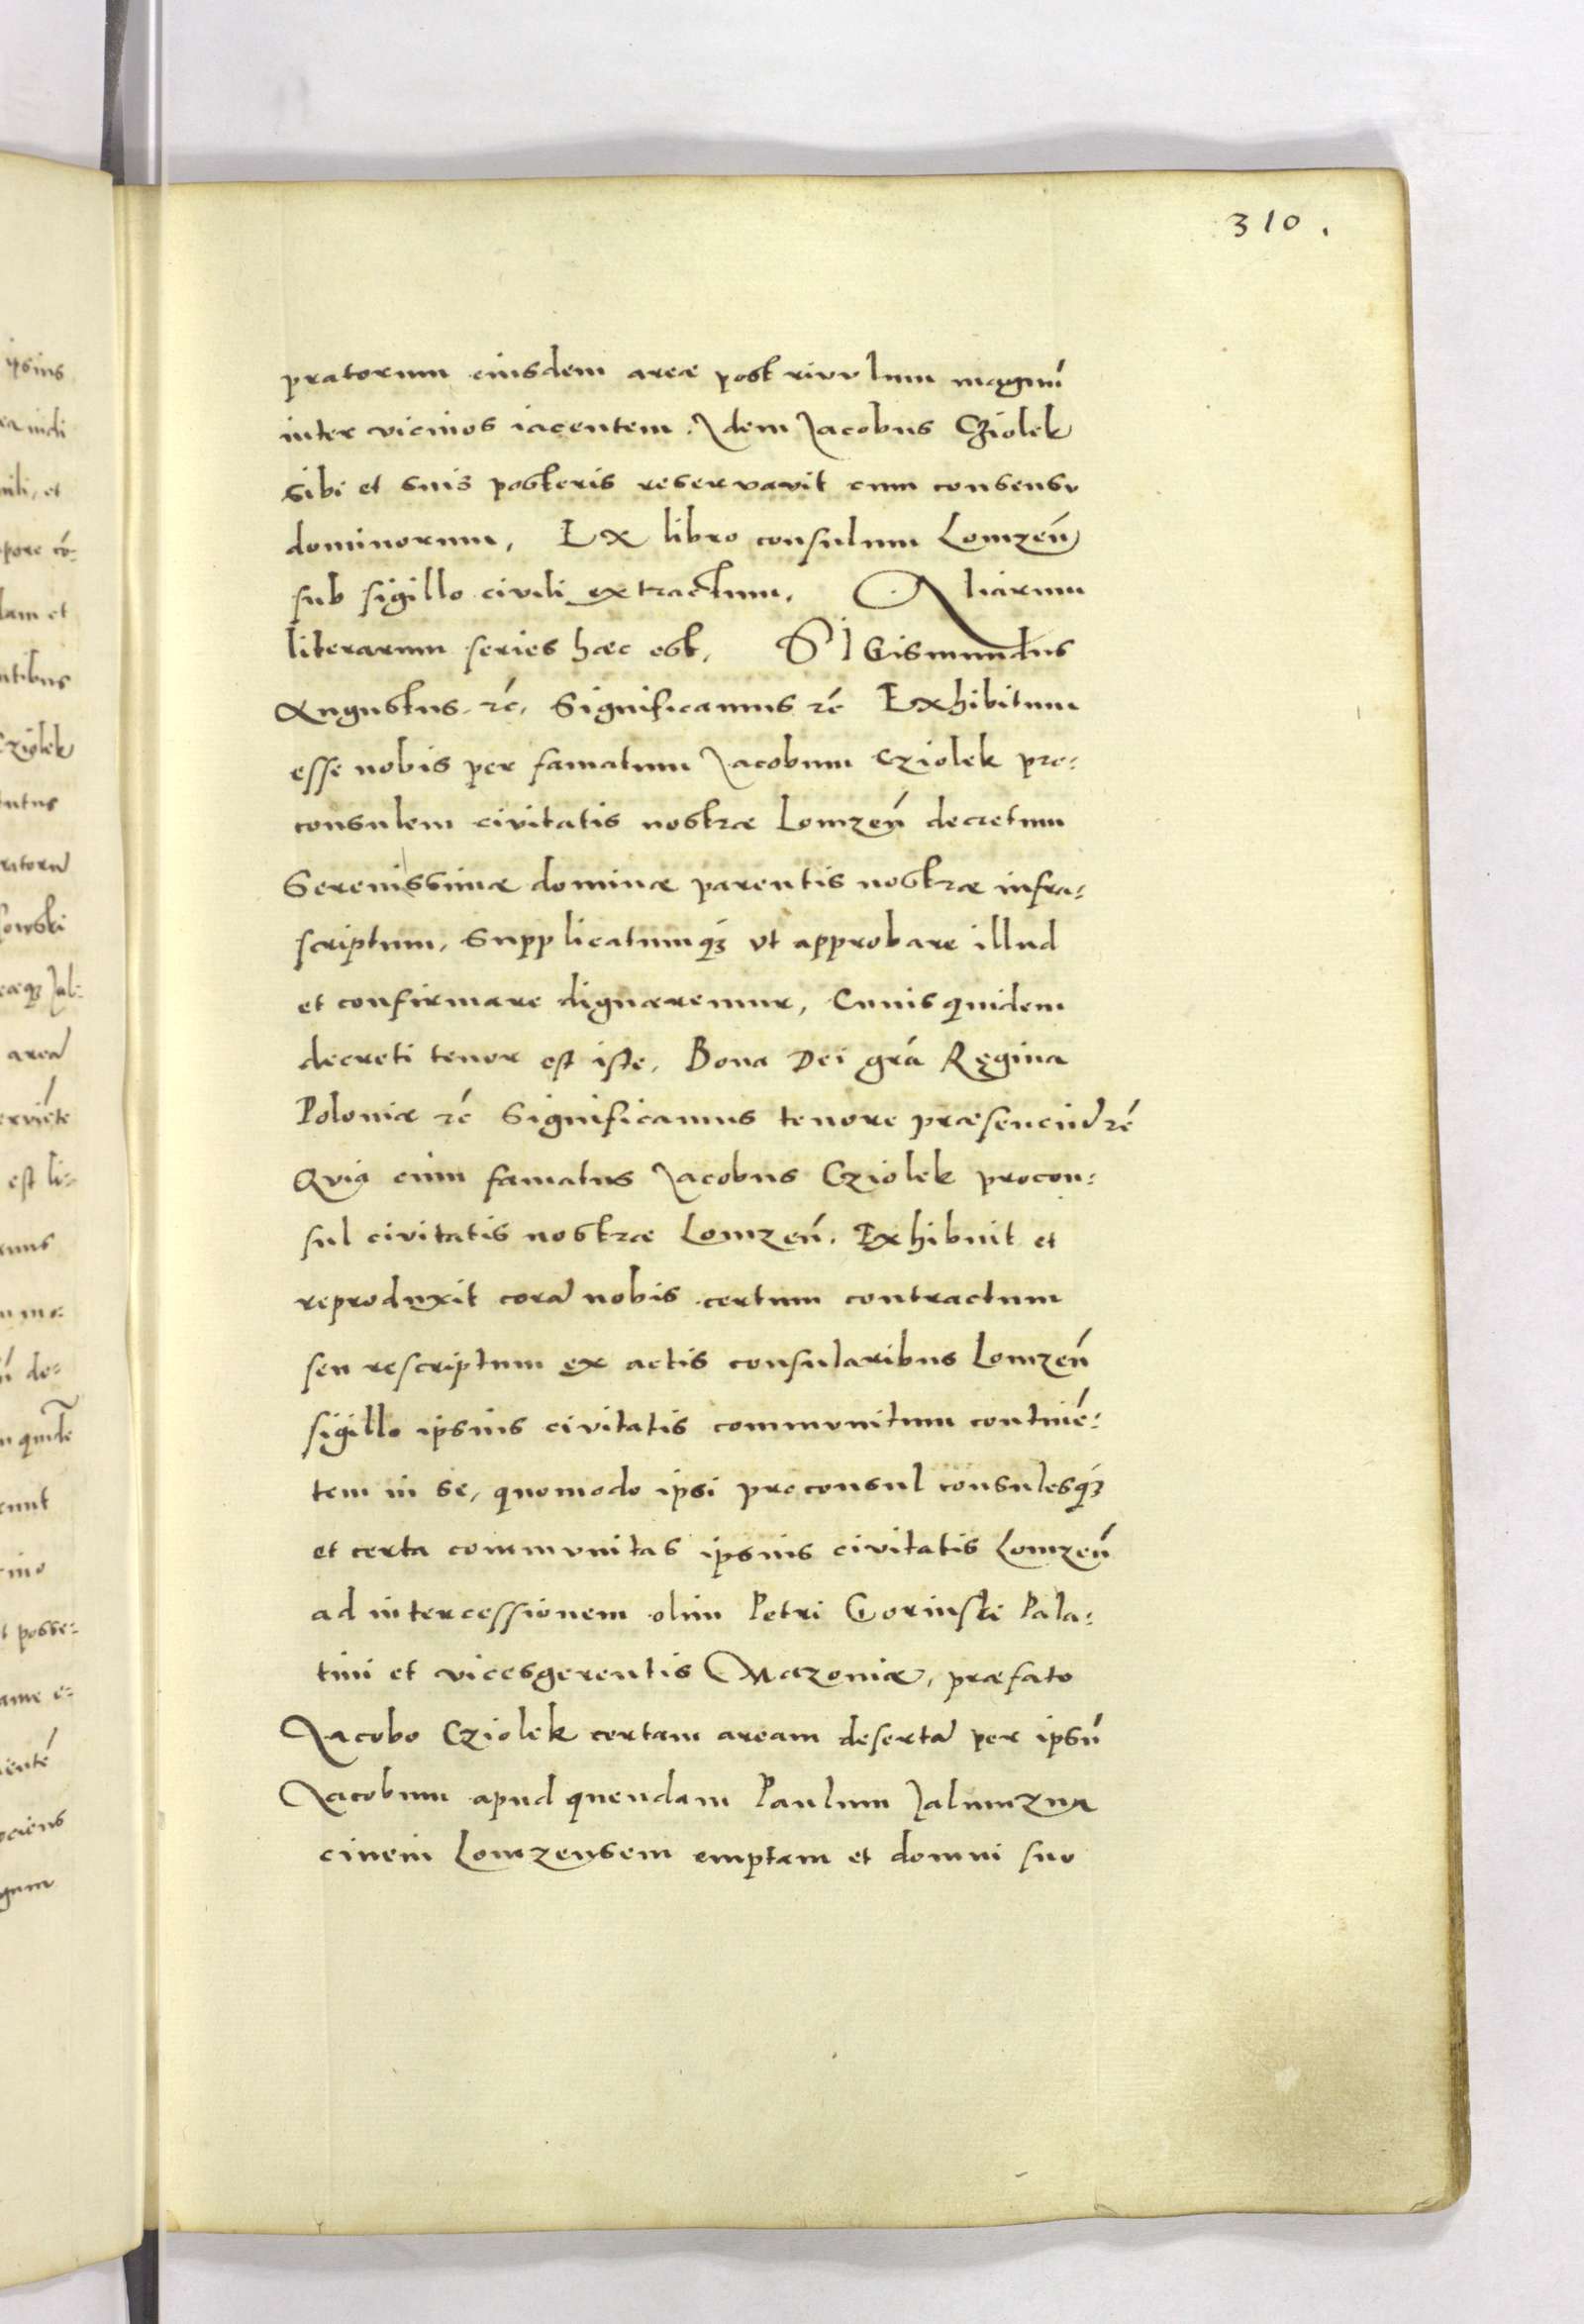 310.
pratorum eiusdem areæ post rivvlum magnū
inter vicinos iacentem. Idem Jacobus Cziolek
sibi et suis posteris reservavit cum consensv
dominorum, Ex libro consulum Lomzeń
sub sigillo civili extractum, Aliarum
literarum series hæc est, SIGismundus
Augustus ꝛc̄, Significamus ꝛc̄ Exhibitum
esse nobis per famatum Jacobum Cziolek pro-
consulem civitatis nostræ Lomzeń decretum
Serenissimæ dominæ parentis nostræ infra-
scriptum, Supplicatumq3 vt approbare illud
et confirmare dignaremur, Cuuis quidem
decreti tenor est iste, Bona Dei grā Regina
Poloniæ ꝛc̄ Significamus tenore præsenciū ꝛc̄
Qvia cum famatus Jacobus Cziolek procon-
sul civitatis nostræ Lomzeń. Exhibuit et
reproduxit corā nobis certum contractum
seu rescriptum ex actis consularibus Lomzeń
sigillo ipsius civitatis commvnitum continē-
tem in se, quomodo ipsi proconsul consulesq3
et certa commvnitas ipsius civitatis Lomzeń
ad intercessionem olim Petri Gorinski Pala-
tini et vicesgerentis Mazoniæ, præfato
Jacobo Cziolek certam aream desertā per ipsū
Jacobum apud quendam Paulum Jalumzna
civem Lomzensem emptam et domui suo